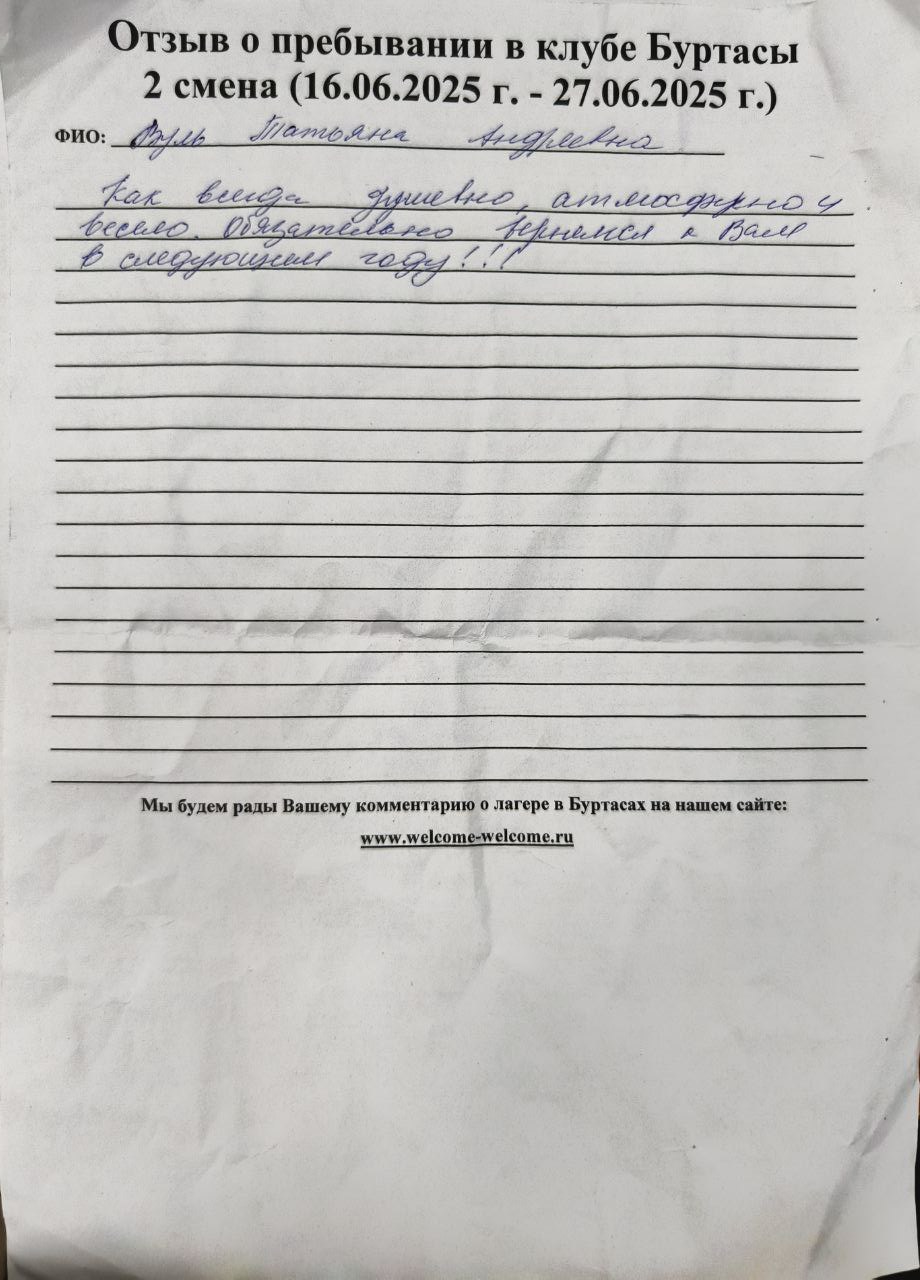 Отзыв о пребывании в клубе Буртасы
2 смена (16.06.2025 г. - 27.06.2025 г.)
ФИО: Вуль Татьяна Андреевна
Как всегда душевно, атмосферно и
весело. Обязательно вернемся к Вам
в следующем году!!!
Мы будем рады Вашему комментарию о лагере в Буртасах на нашем сайте:
www.welcome-welcome.ru